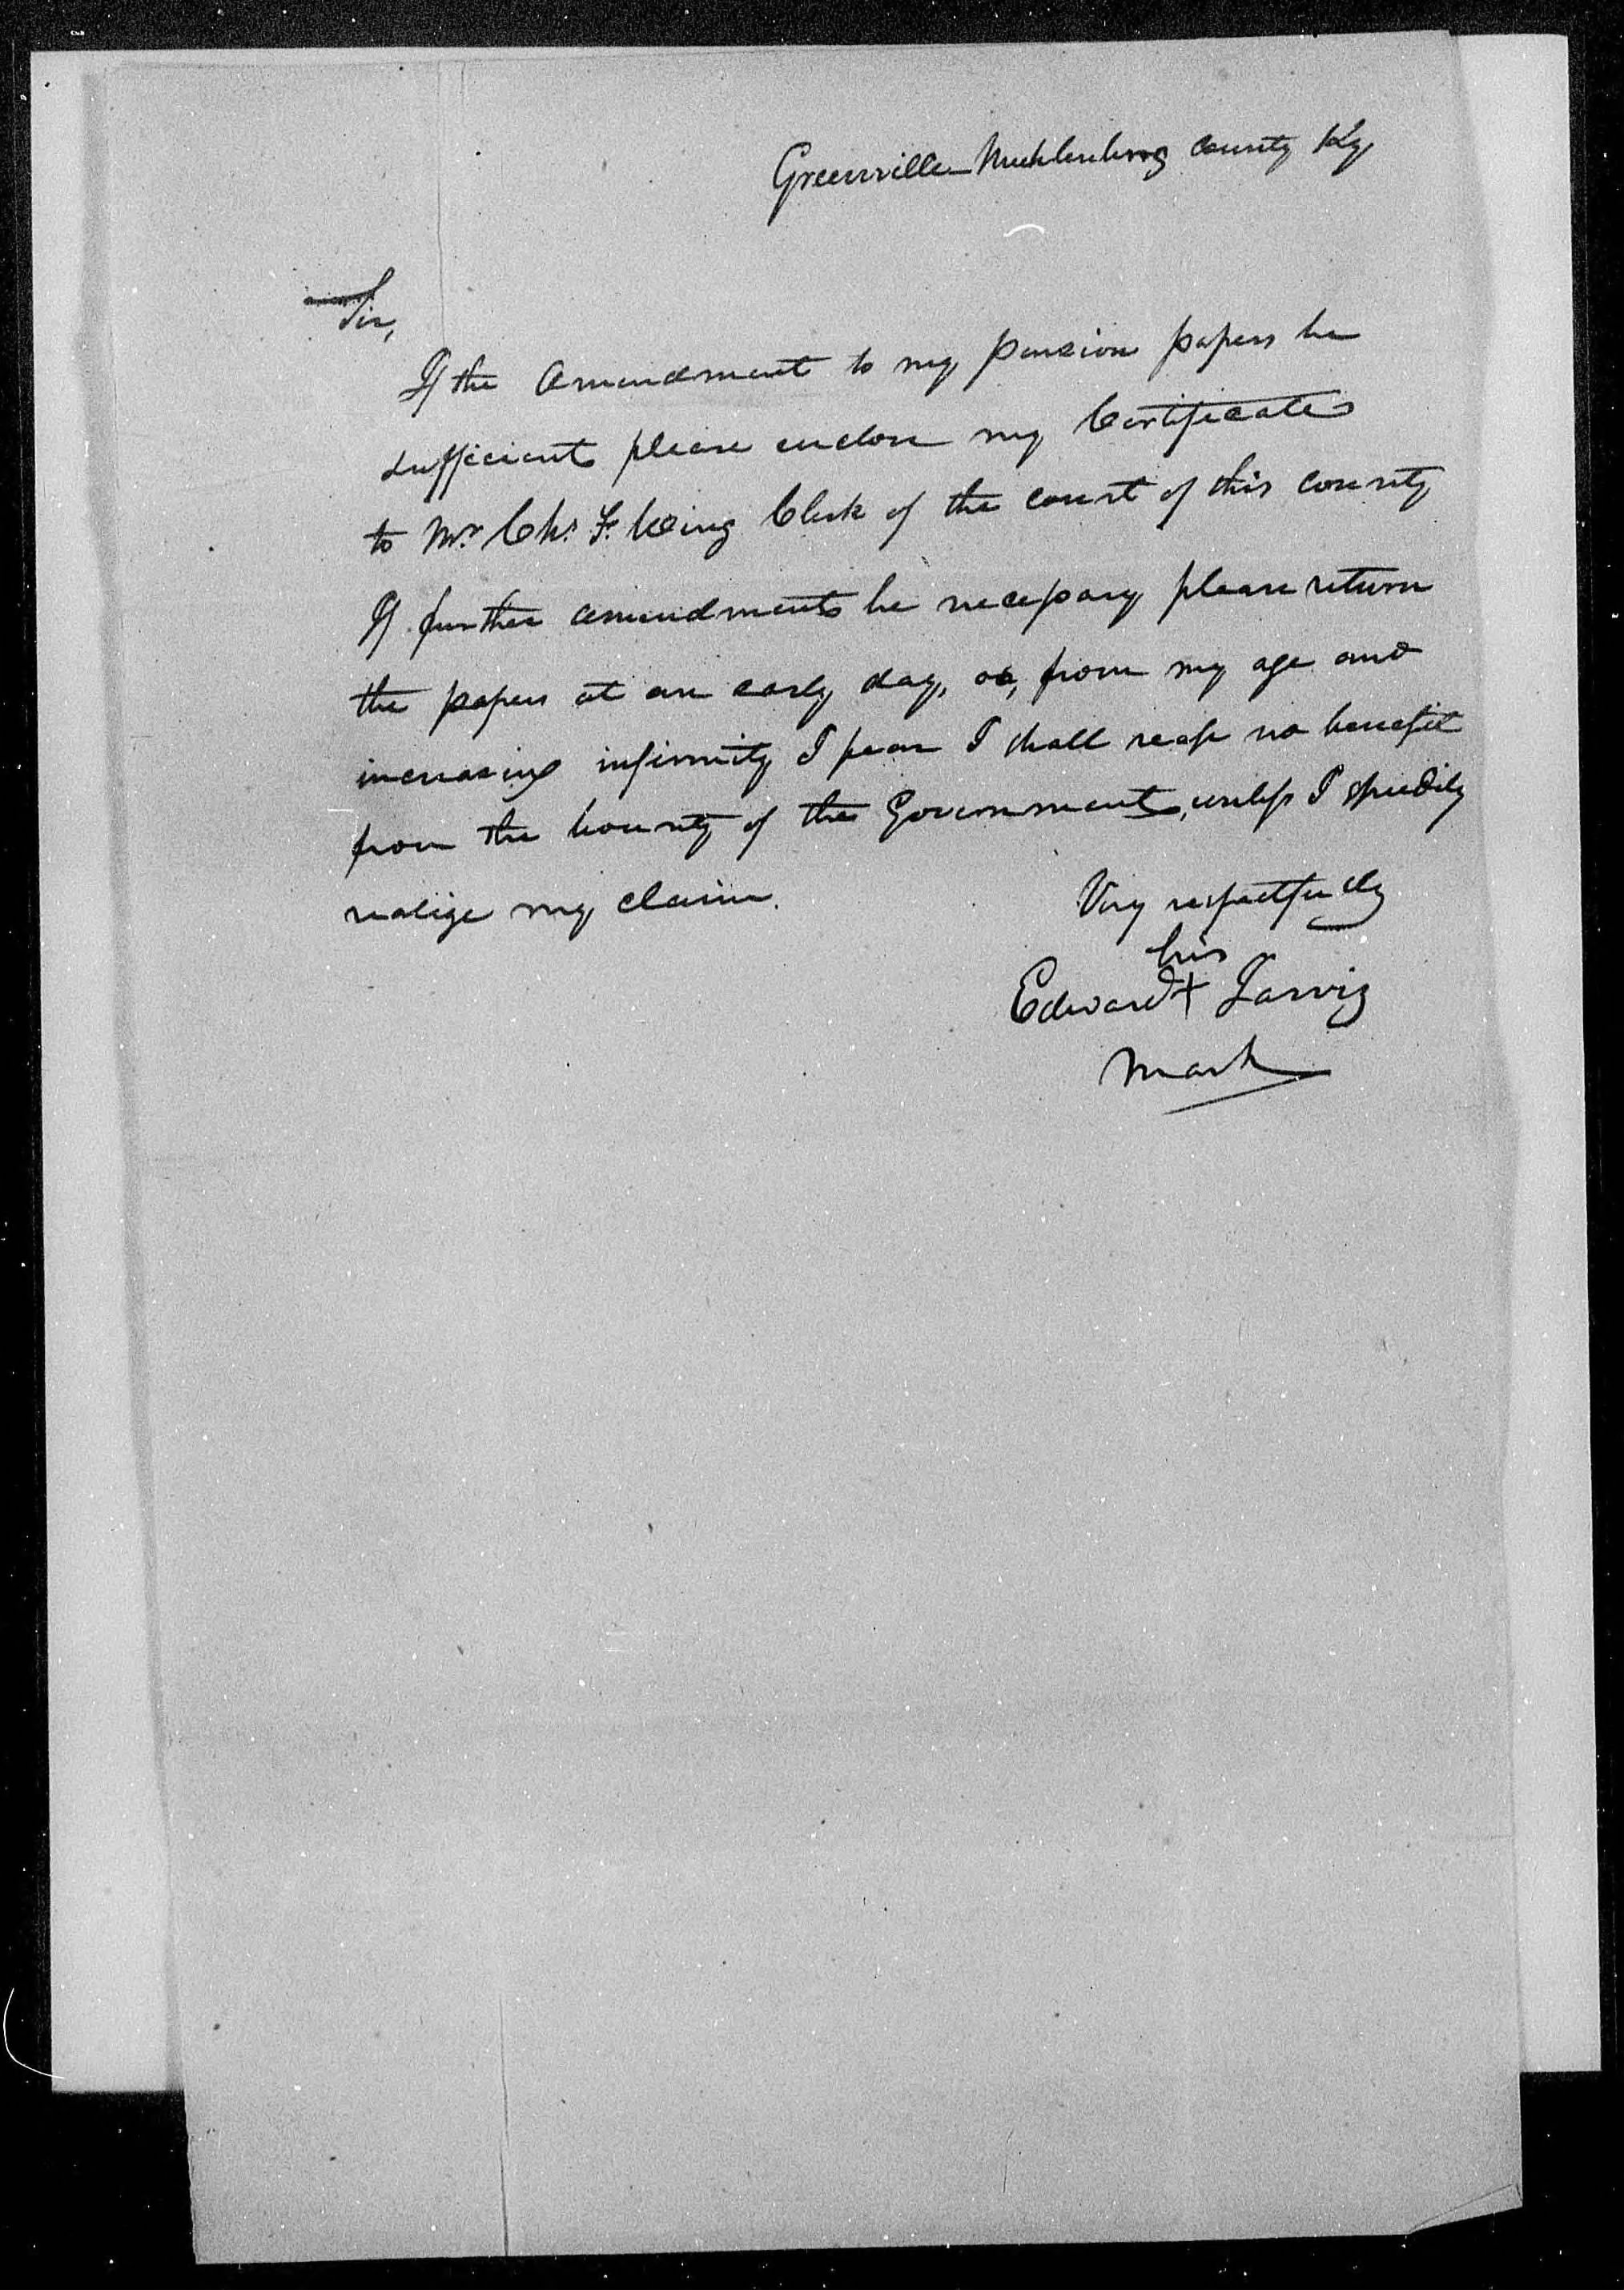 Greenville Muhlenberg County Ky
Sir,
If the Amendment to my pension papers be
sufficient please enclose my Certificate
to Mr. Chs. F. Wing Clerk of the court of this county
If further amendments be necessary please return
the papers at an early day, as, from my age and
increasing infirmity I fear I shall reap no benefit
from the bounty of the Government, unless I speedily
realize my claim.
Very respectfully
his
Edward + Jarvis
mark